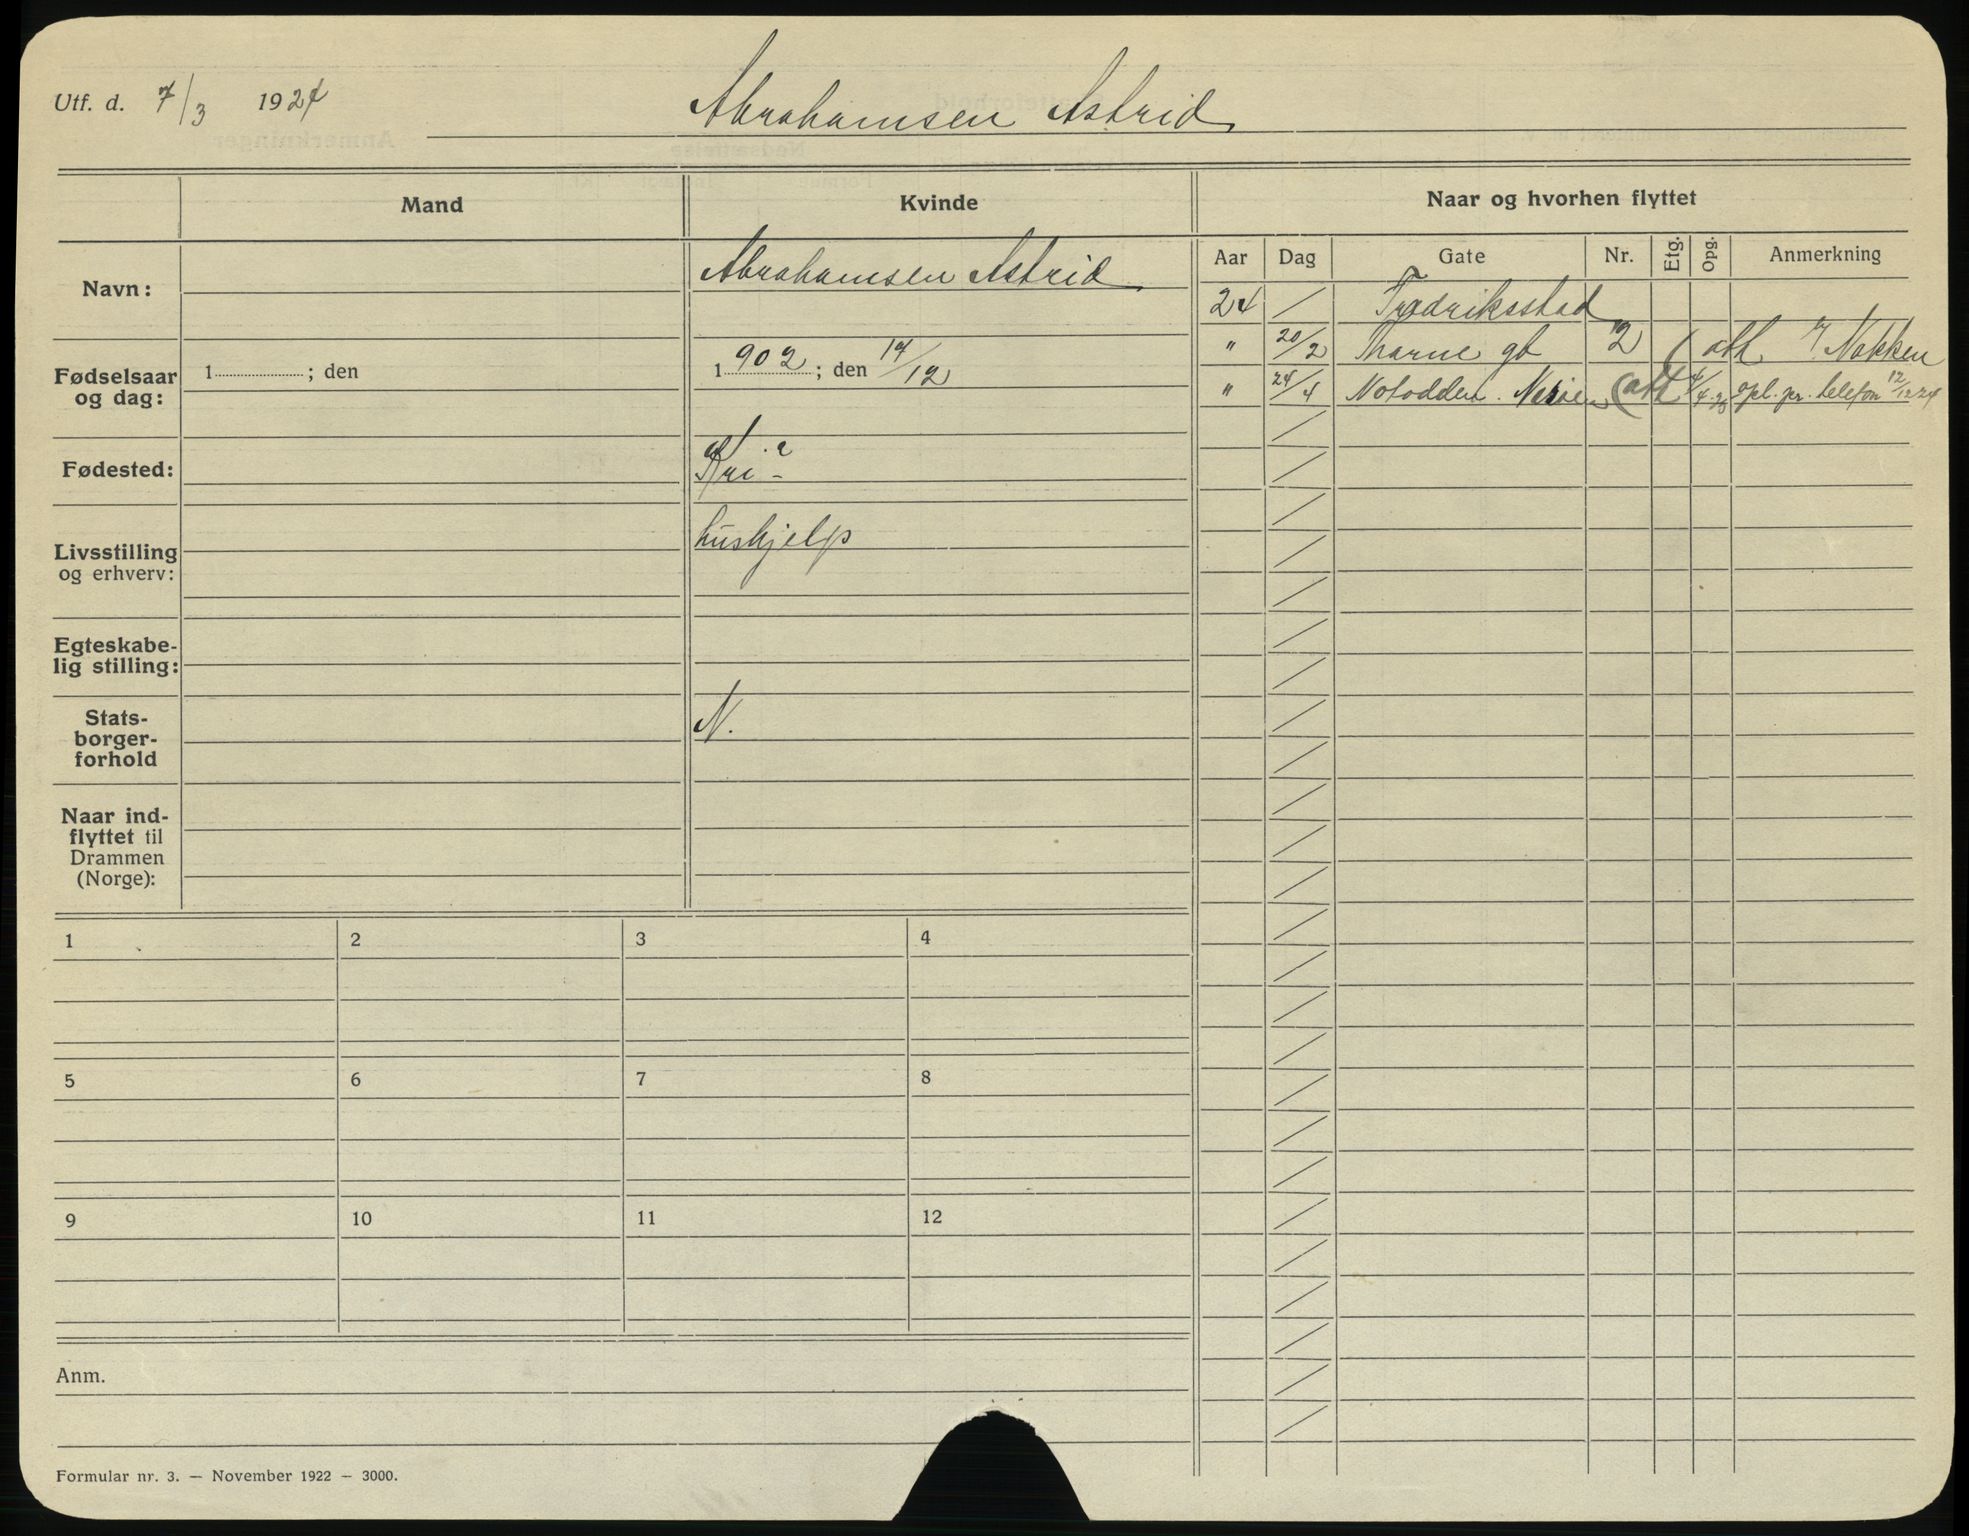 Utf. d. 7/3 1924
Abrahamsen Astrid
Mand Kvinde Naar og hvorhen flyttet
Aar Dag Gate Nr. Etg. Opg. Anmerkning
Navn: Abrahamsen Astrid
24 / Fredriksstad
" 20/2 Tharne gt 2 ( att Nokken
" 24/4 Notodden. (att 4/4 25 opl. pr. telefon 12/12 24
Fødselsaar og dag: 1 ; den 1 902 ; den 14/12
Fødested: Kri-a
Livsstilling og erhverv: hushjelp
Egteskabe-
lig stilling:
Stats-
borger-
forhold N.
Naar ind-
flyttet til
Drammen
(Norge):
1 2 3 4
5 6 7 8
9 10 11 12
Anm.
Formular nr. 3. — November 1922 — 3000.